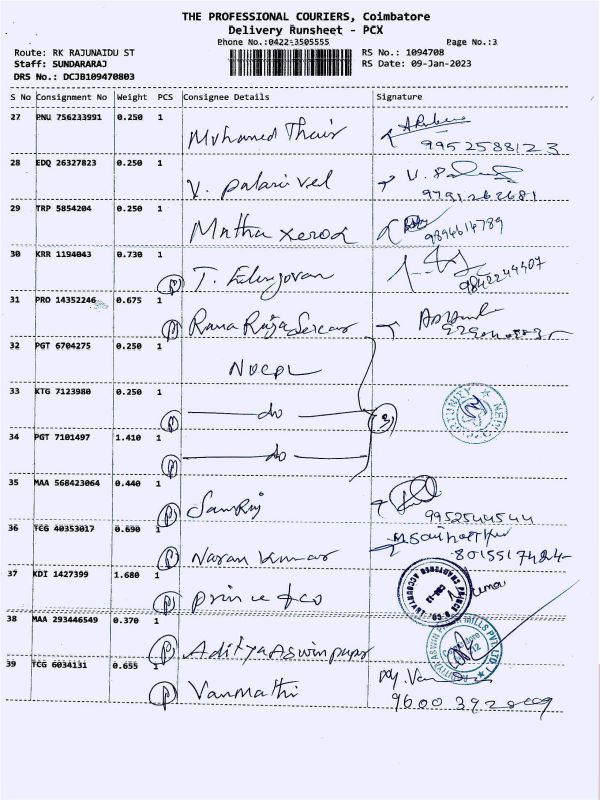 THE PROFESSIONAL COURIERS, Coimbatore
Delivery Runsheet - PCX
Phone No.:0422-3505555 Page No.:3
Route: RK RAJUNAIDU ST RS No.: 1094708
Staff: SUNDARARAJ RS Date: 09-Jan-2023
DRS No.: DCJB109470803
S No Consignment No Weight PCS Consignee Details Signature
27 PNU 756233991 0.250 1 Mohamed Thair
9952588123
28 EDQ 26327823 0.250 1 V. Palanivel
9791262681
29 TRP 5854204 0.250 1 Matha xerox
9894614789
30 KRR 1194043 0.730 1 T.
9842244407
31 PRO 14352246 0.675 1 Rana Raja
32 PGT 6704275 0.250 1 NOCPL
33 KTG 7123980 0.250 1 do 3
34 PGT 7101497 1.410 1 do
35 MAA 568423064 0.440 1 SamRaj
9952544544
36 TCG 40353017 0.690 1 Naran Kumar
8015517484
37 KDI 1427399 1.680 1 prince & co
38 MAA 293446549 0.370 1 Aditya Aswin paper
39 TCG 6034131 0.655 1 Vanmathi